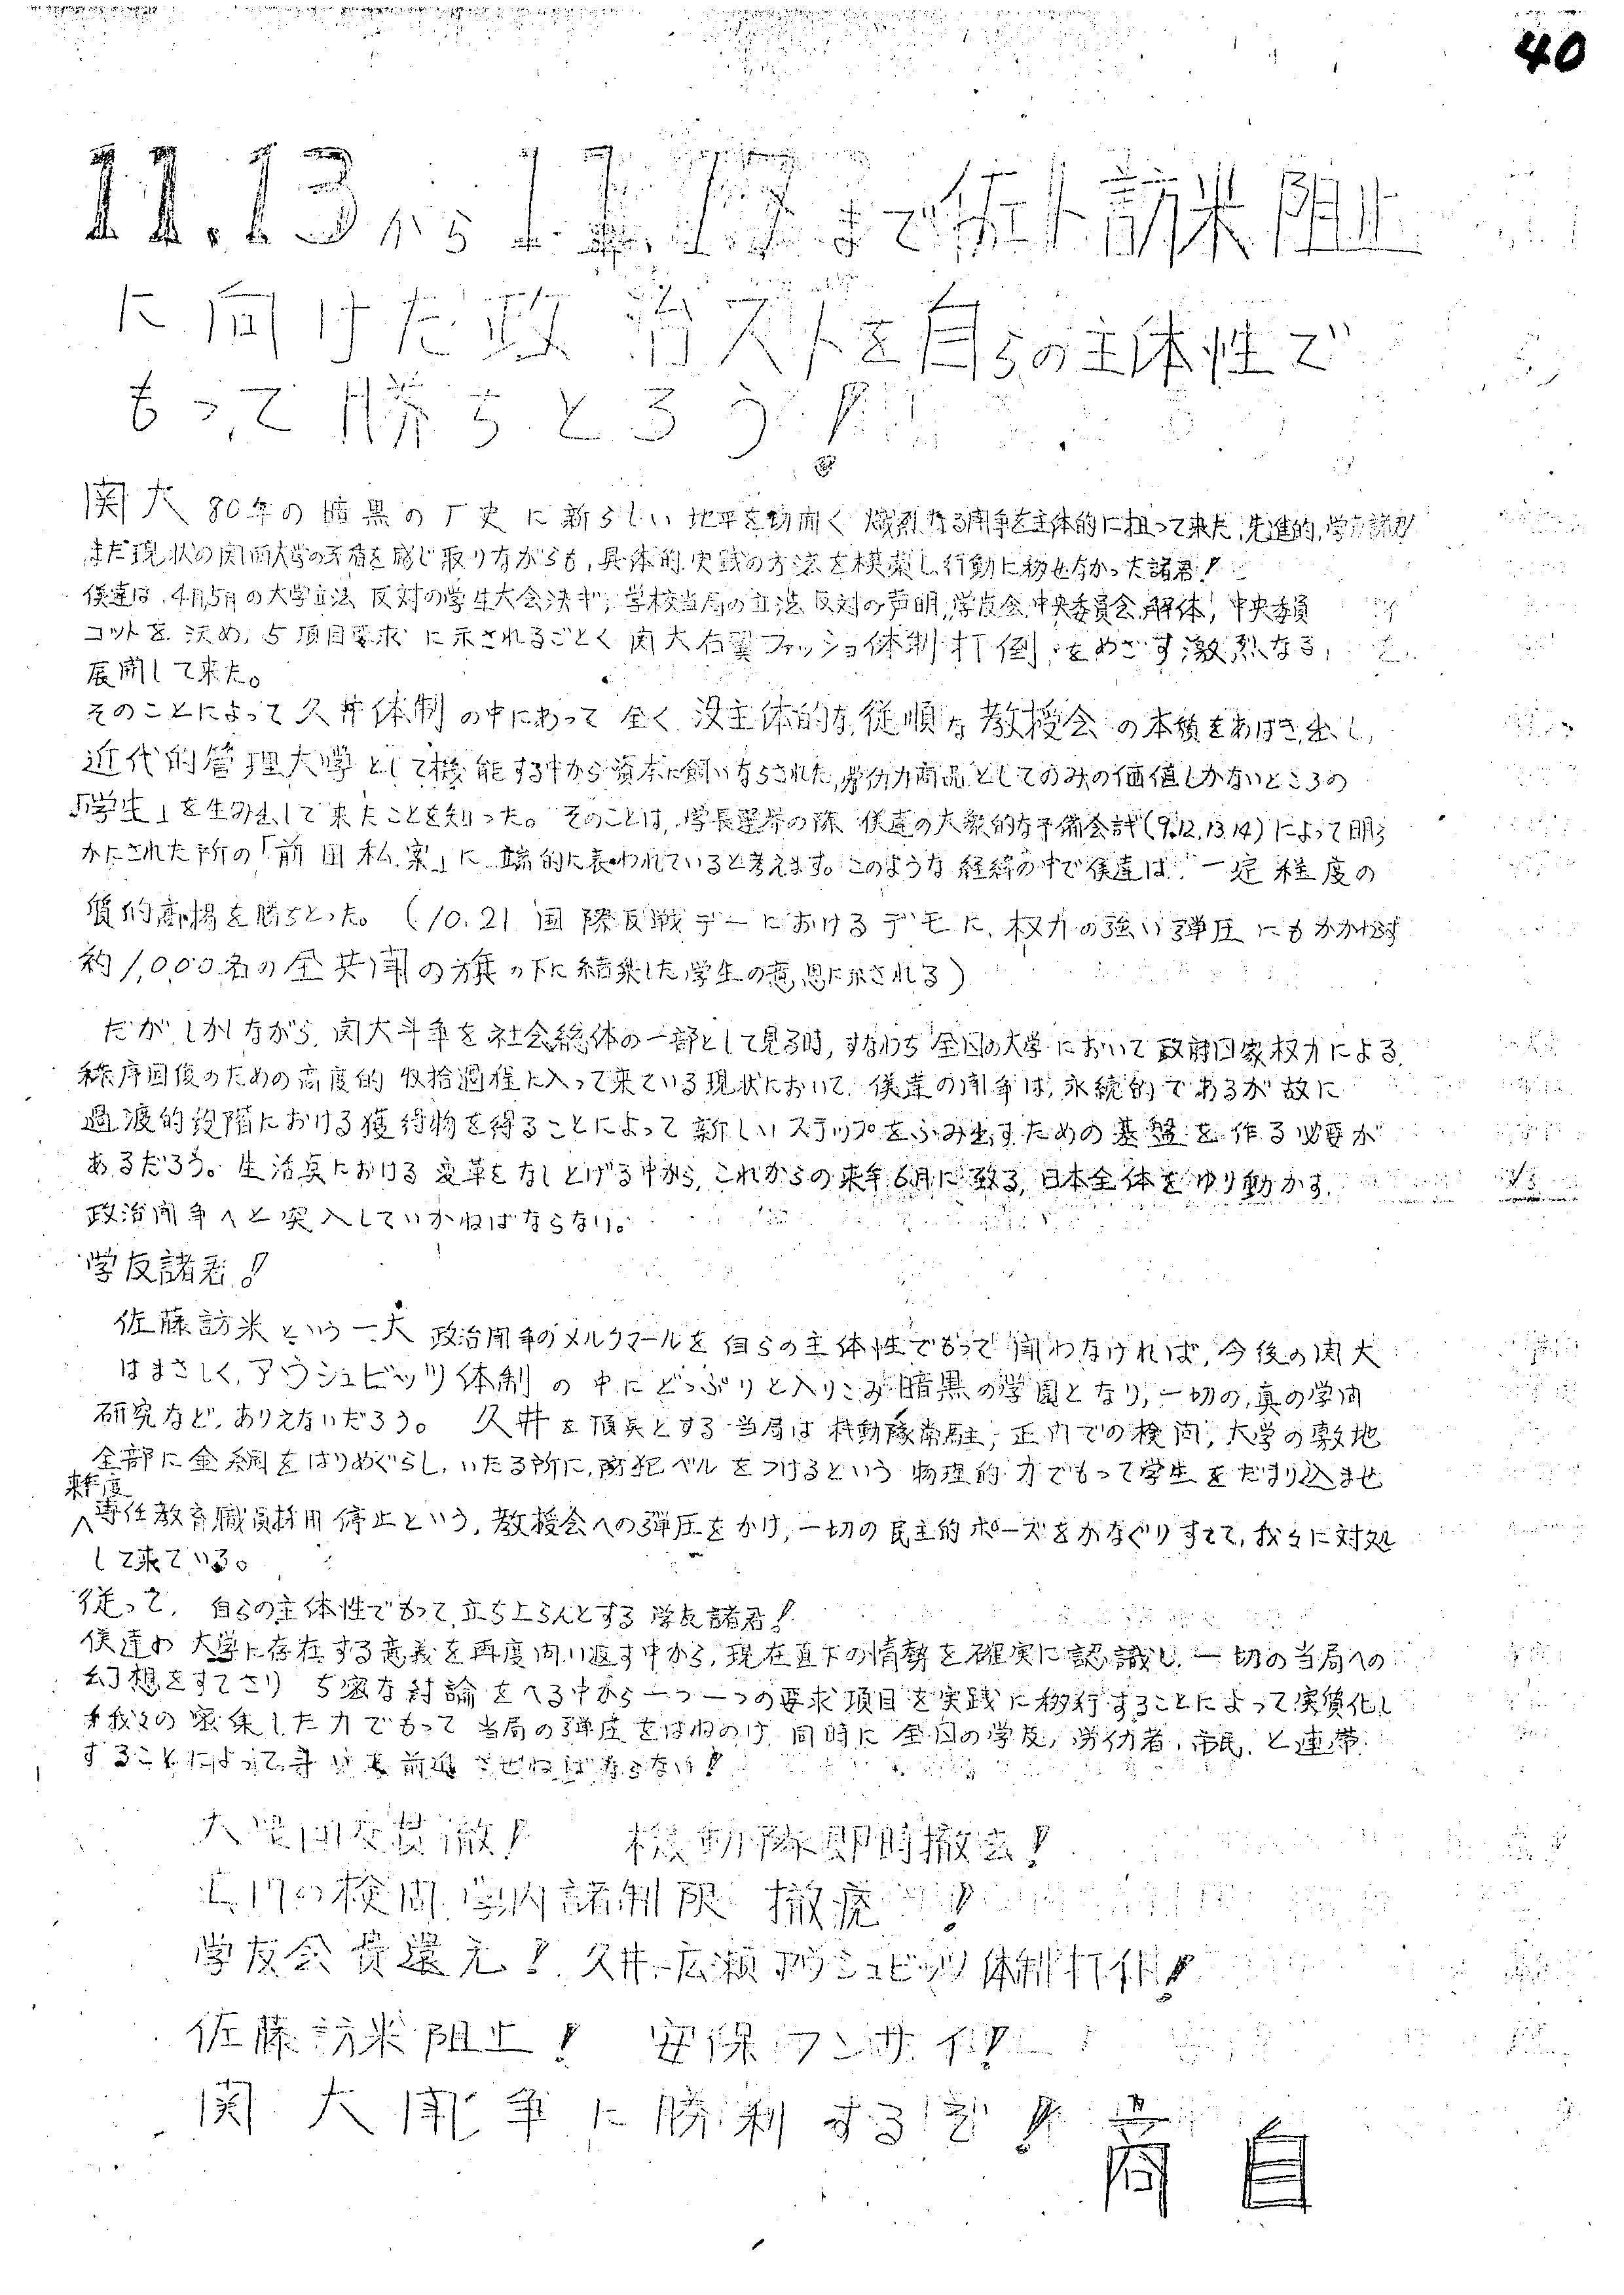 40
11.13から11.17まで佐ト訪米阻止
に向けた政治ストを自らの主体性で
もって勝ちとろう!!
関大80年の暗黒の厂史に新らしい地平を切開く熾烈なる闘争を主体的に担って来た,先進的,学友諸君!
まだ現状の関西大学の矛盾を感じ取りながらも,具体的実践の方法を模索し行動に移せなかった諸君!
僕達は,4月,5月の大学立法反対の学生大会決ギ,学校当局の立法反対の声明,学友会中央委員会解体!中央委員
コットを決め,5項目要求に示されるごとく関大右翼ファッショ体制打倒,をめざす激烈なる,
展開して来た。
そのことによって久井体制の中にあって全く没主体的な従順な教授会の本質をあばき出し,
近代的管理大学として機能する中から資本に飼いならされた,労仂力商品としてのみの価値しかないところの
「学生」を生み出して来たことを知った。そのことは,学長選挙の際僕達の大衆的な予備会談(9.12.13.14)によって明ら
かにされた所の「前田私案」に端的に表われていると考えます。このような経緯の中で僕達は,一定程度の
質的高揚を勝ちとった。(10.21国際反戦デーにおけるデモに,权力の強い弾圧にもかかわらず
約1,000名の全共闘の旗の下に結集した学生の意思に示される)
だが,しかしながら,関大斗争を社会総体の一部として見る時,すなわち全国の大学において政府国家权力による,
秩序回復のための高度的収拾過程に入って来ている現状において,僕達の闘争は,永続的であるが故に
過渡的段階における獲得物を得ることによって新しいステップをふみ出すための基盤を作る必要が
あるだろう。生活点における変革をなしとげる中から,これからの来年6月に致る,日本全体をゆり動かす,
政治闘争へと突入していかねばならない。
学友諸君!
佐藤訪米という一大政治闘争のメルクマールを自らの主体性でもって闘わなければ,今後の関大
はまさしく,アウシュビッツ体制の中にどっぷりと入りこみ暗黒の学園となり,一切の,真の学問
研究など,ありえないだろう。久井を頂点とする当局は机動隊常駐,正門での検問,大学の敷地
全部に金網をはりめぐらし,いたる所に,防犯ベルをつけるという物理的力でもって学生をだまり込ませ
来年度
^専任教育職員採用停止という,教授会への弾圧をかけ,一切の民主的ポーズをかなぐりすてて,我々に対処
して来ている。
従って,自らの主体性でもって,立ち上らんとする学友諸君!
僕達の大学に存在する意義を再度問い返す中から,現在直下の情勢を確実に認識し,一切の当局への
幻想をすてさり5密な討論をへる中から一つ一つの要求項目を実践に移行することによって実質化し
我々の密集した力でもって当局の弾圧をはねのけ同時に全国の学友,労仂者,市民,と連帯
することによって斗いを前進させねばならない!
大衆団交貫徹! 機動隊即時撤去!
正門の検問,学内諸制限撤廃!
学友会費還元! 久井-広瀬アウシュビッツ体制打倒!
佐藤訪米阻止! 安保フンサイ!
関大闘争に勝利するぞ!!
商自